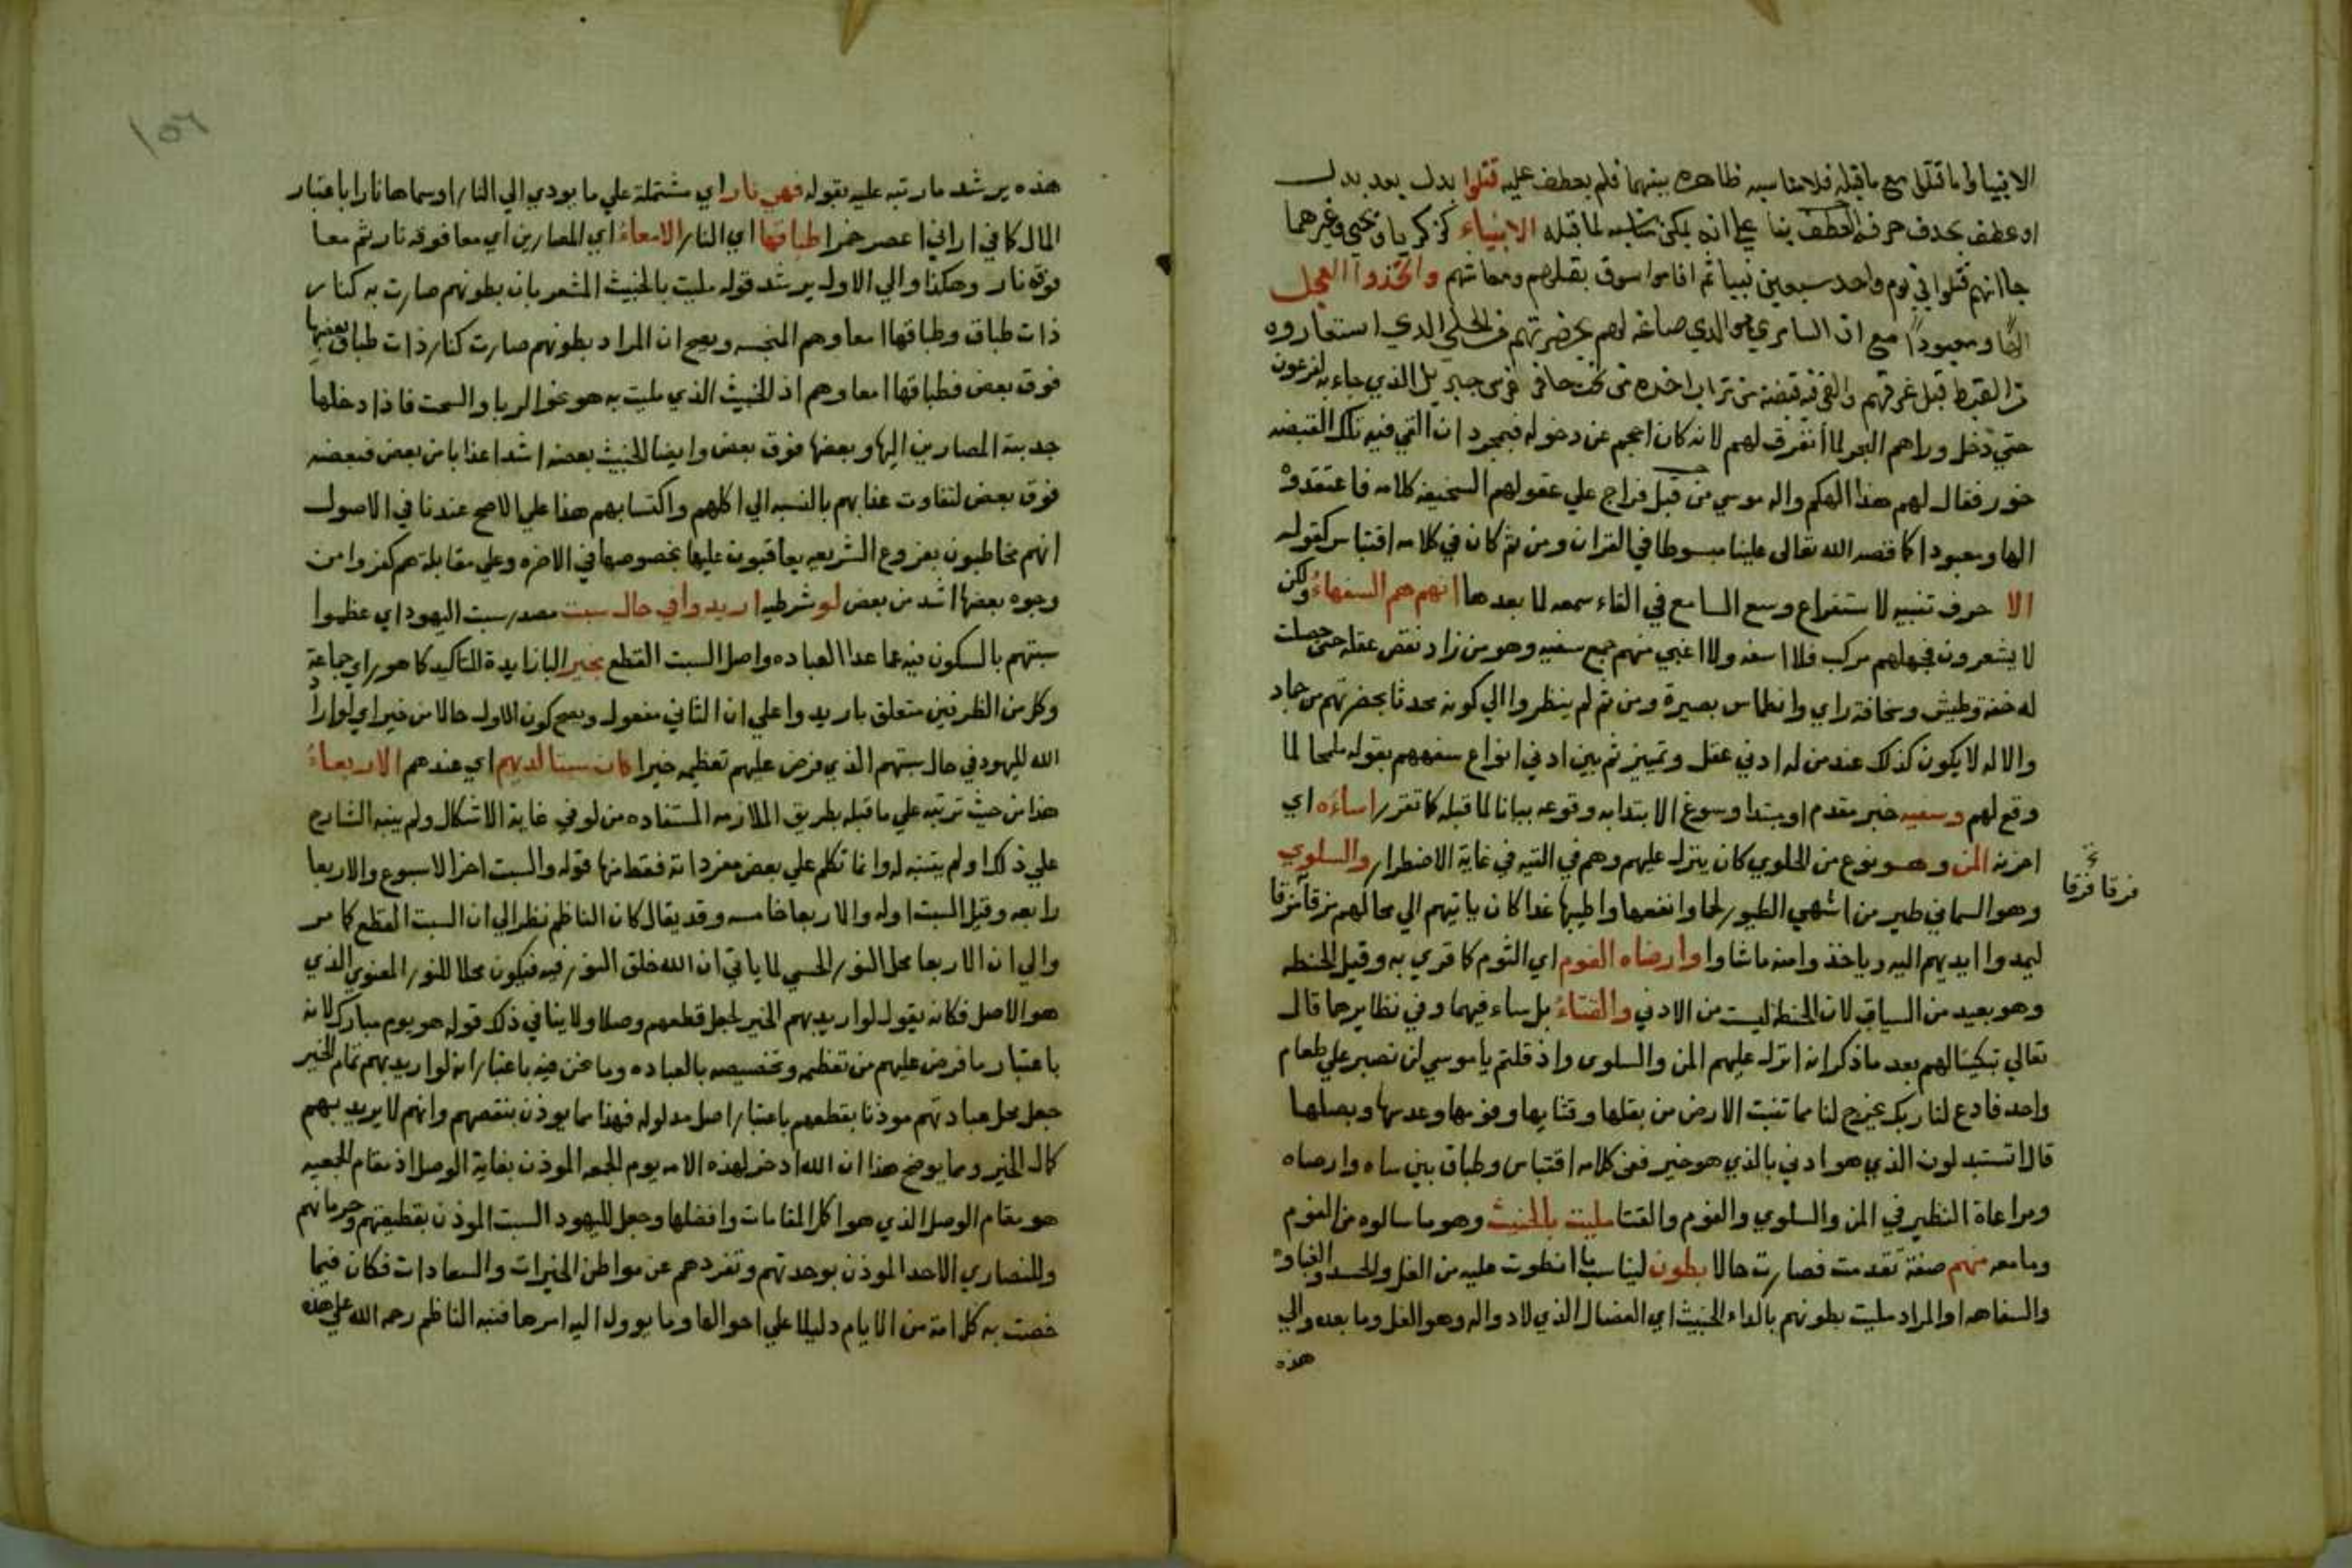 الانبيا واما قتلوا مع ما قبله فلا مناسبه ظاهره بينهما فلم يعطف عليه قتلوا بدل بعد بدل
او عطف بحذف حرف العطف بنا على انه يمكن مناسبه لما قبله الانبياء كزكريا ويحيى وغيرهما
جا انهم قتلوا في يوم واحد سبعين نبيا ثم اقاموا سوق بقلهم ومعاشهم واتخذوا العجل
الها ومعبودا مع ان السامري هو الذي صاغه لهم بحضرتهم من الحلي الذي استعاروه
من القبط قبل غرقهم والقى فيه قبضة من تراب اخذه من تحت حافر فرس جبريل الذي جاء به لفرعون
حتي دخل وراهم البحر لما انفرق لهم لانه كان احجم عن دخوله فبمجرد ان القي فيه تلك القبضه
خور فقال لهم هذا الهكم واله موسي من قبل فراج علي عقولهم السخيفه كلامه فاعتقدوه
الها ومعبودا كما قصه الله تعالى علينا مبسوطا في القران ومن ثم كان في كلامه اقتباس كقوله
الا حرف تنبيه لاستفراغ وسع السامع في القاء سمعه لما بعدها انهم هم السفهاء ولكن
لا يشعرون فجهلهم مركب فلا اسفه ولا اغبي منهم جمع سفيه وهو من زاد نقص عقله حتى حصلت
له خفة وطيش وسخافة راي وانطماس بصيرة ومن ثم لم ينظروا الي كونه محدثا بحضرتهم من جماد
والاله لا يكون كذلك عند من له ادني عقل وتمييز ثم بين ادني انواع سفههم بقوله ملمحا لما
وقع لهم وسفيه خبر مقدم او مبتدا وسوغ الابتدا به وقوعه بيانا لما قبله كما تقرر اساءه اي
احزنه المن وهو نوع من الحلوي كان ينزل عليهم وهم في التيه في غاية الاضطرار والسلوي
وهو السماني طير من اشهي الطيور لحما وانفعها واطيبها غذا كان ياتيهم الي محالهم فرقا فرقا
فرقا فرقا
ليمدوا ايديهم اليه وياخذوا منه ماشاوا وارضاه الفوم اي الثوم كما قري به وقيل الحنطه
وهو بعيد من السياق لان الحنطه ليست من الادني والقثاء بل ساء فيهما وفي نظايرها قال
تعالي تبكيتا لهم بعد ما ذكر انه انزل عليهم المن والسلوى واذ قلتم يا موسي لن نصبر علي طعام
واحد فادع لنا ربك يخرج لنا مما تنبت الارض من بقلها وقثايها وفومها وعدسها وبصلها
قال اتستبدلون الذي هو ادني بالذي هو خير ففي كلامه اقتباس وطباق بين ساه وارضاه
ومراعاة النظير في المن والسلوي والفوم والقثا مليت بالخبيث وهو ما سالوه من الفوم
وما معه منهم صفة تقدمت فصارت حالا بطون ليناسب ما انطوت عليه من الغل والحسد والغباوه
والسفاهه او المراد مليت بطونهم بالداء الخبيث اي العضال الذي لا دوا له وهو الغل وما بعده والي
هذه
١٥٦
هذه يرشد ما رتبه عليه بقوله فهي نار اي مشتملة علي ما يودي الي النار او سماها نارا باعتبار
المال كما في اراني اعصر خمرا طباقها اي النار الامعاء اي المصارين اي معا فوقه نار ثم معا
فوقه نار وهكذا والي الاول يرشد قوله مليت بالخبيث المشعر بان بطونهم صارت به كنار
ذات طباق وطباقها امعاوهم المنجسه ويصح ان المراد بطونهم صارت كنار ذات طباق بعضها
فوق بعض فطباقها امعاوهم اذ الخبيث الذي مليت به هو نحو الربا والسحت فاذا دخلها
جذبته المصارين اليها وبعضها فوق بعض وايضا الخبيث بعضه اشد عذابا من بعض فبعضه
فوق بعض لتفاوت عذابهم بالنسبه الي اكلهم واكتسابهم هذا علي الاصح عندنا في الاصول
انهم مخاطبون بفروع الشريعه يعاقبون عليها بخصوصها في الاخره وعلي مقابله هم كفروا من
وجوه بعضها اشد من بعض لو شرطيه اريدوا في حال سبت مصدر سبت اليهود اي عظموا
سبتهم بالسكون فيه عما عدا العباده واصل السبت القطع بخير البا زايدة للتاكيد كما هو راي جماعة
وكل من الظرفين متعلق باريدوا علي ان الثاني مفعول ويصح كون الاول حالا من خير اي لو اراد
الله لليهود في حال سبتهم الذي فرض عليهم تعظيمه خيرا كان سبتا لديهم اي عندهم الاربعاء
هذا من حيث ترتبه علي ما قبله بطريق الملازمه المستفاده من لو في غاية الاشكال ولم ينبه الشارح
علي ذلك او لم يتنبه له وانما تكلم علي بعض مفرداته فقط منها قوله والسبت اخر الاسبوع والاربعا
رابعه وقيل السبت اوله والاربعا خامسه وقد يقال كان الناظم نظر الي ان السبت القطع كما مر
والي ان الاربعا محل النور الحسي لما ياتي ان الله خلق النور فيه فيكون محلا للنور المعنوي الذي
هو الاصل فكانه يقول لو اريد بهم الخير لجعل قطعهم وصلا ولا ينافي ذلك قوله هو يوم مبارك لانه
باعتبار ما فرض عليهم من تعظيمه وتخصيصه بالعباده وما نحن فيه باعتبار انه لو اريد بهم تمام الخير
جعل محل عبادتهم موذنا بقطعهم باعتبار اصل مدلوله فهذا مما يوذن بنقصهم وانهم لا يريد بهم
كمال الخير ومما يوضح هذا ان الله ادخر لهذه الامه يوم الجمعه الموذن بغاية الوصل اذ مقام الجمعيه
هو مقام الوصل الذي هو اكمل المقامات وافضلها وجعل لليهود السبت الموذن بقطيعتهم وحرمانهم
وللنصاري الاحد الموذن بوحدتهم وتفردهم عن مواطن الخيرات والسعادات فكان فيما
خصت به كل امة من الايام دليلا علي احوالها وما يوول اليه امرها فنبه الناظم رحمه الله علي هذه